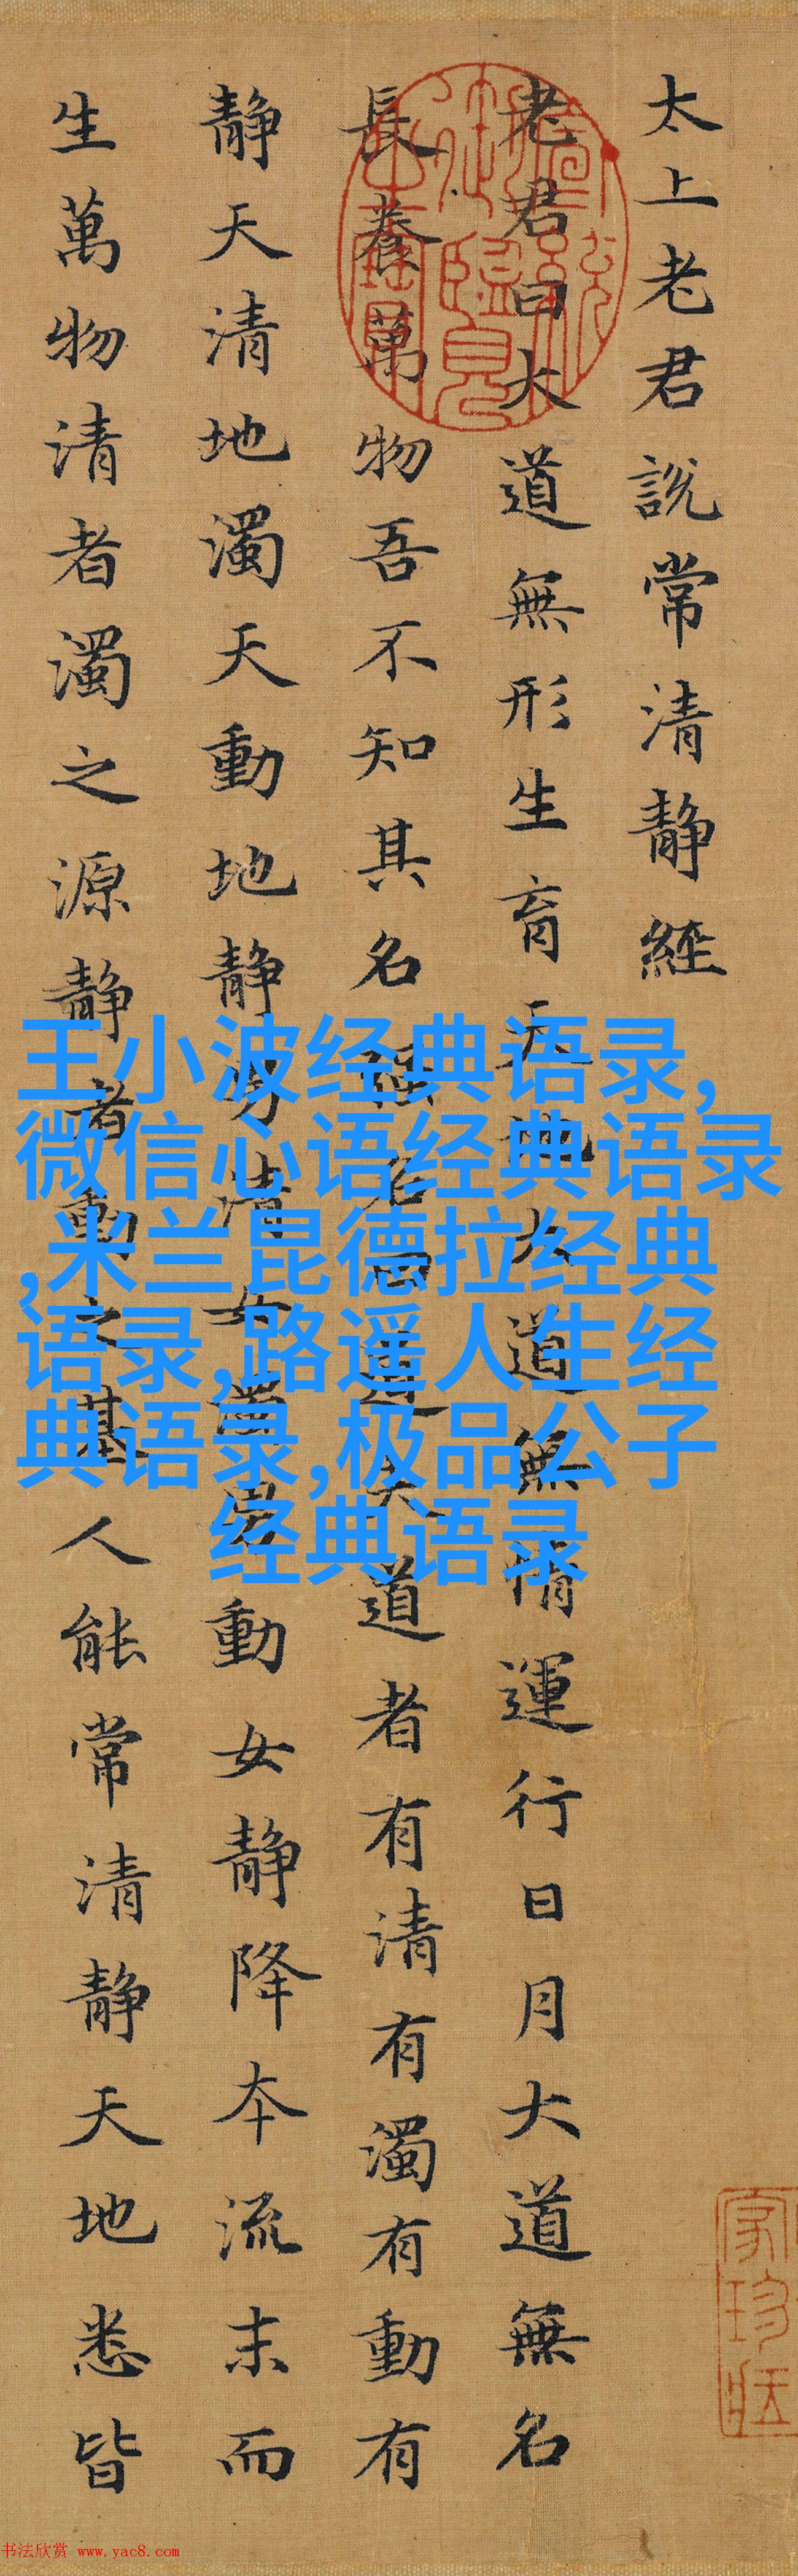 太上老君說常清靜經
老君曰大道無形生育天地大道無情運行日月大道無名
長養萬物吾不知其名強名曰道夫道者有清有濁有動有
靜天清地濁天動地靜男清女濁男動女靜降本流末而
生萬物清者濁之源靜者動之基人能常清靜天地悉皆
王小波经典语录,
微信心语经典语录
,米兰昆德拉经典
语录,路遥人生经
典语录,极品公子
经典语录
宣統御覽之寶
家珍
书法欣赏 www.yac8.com